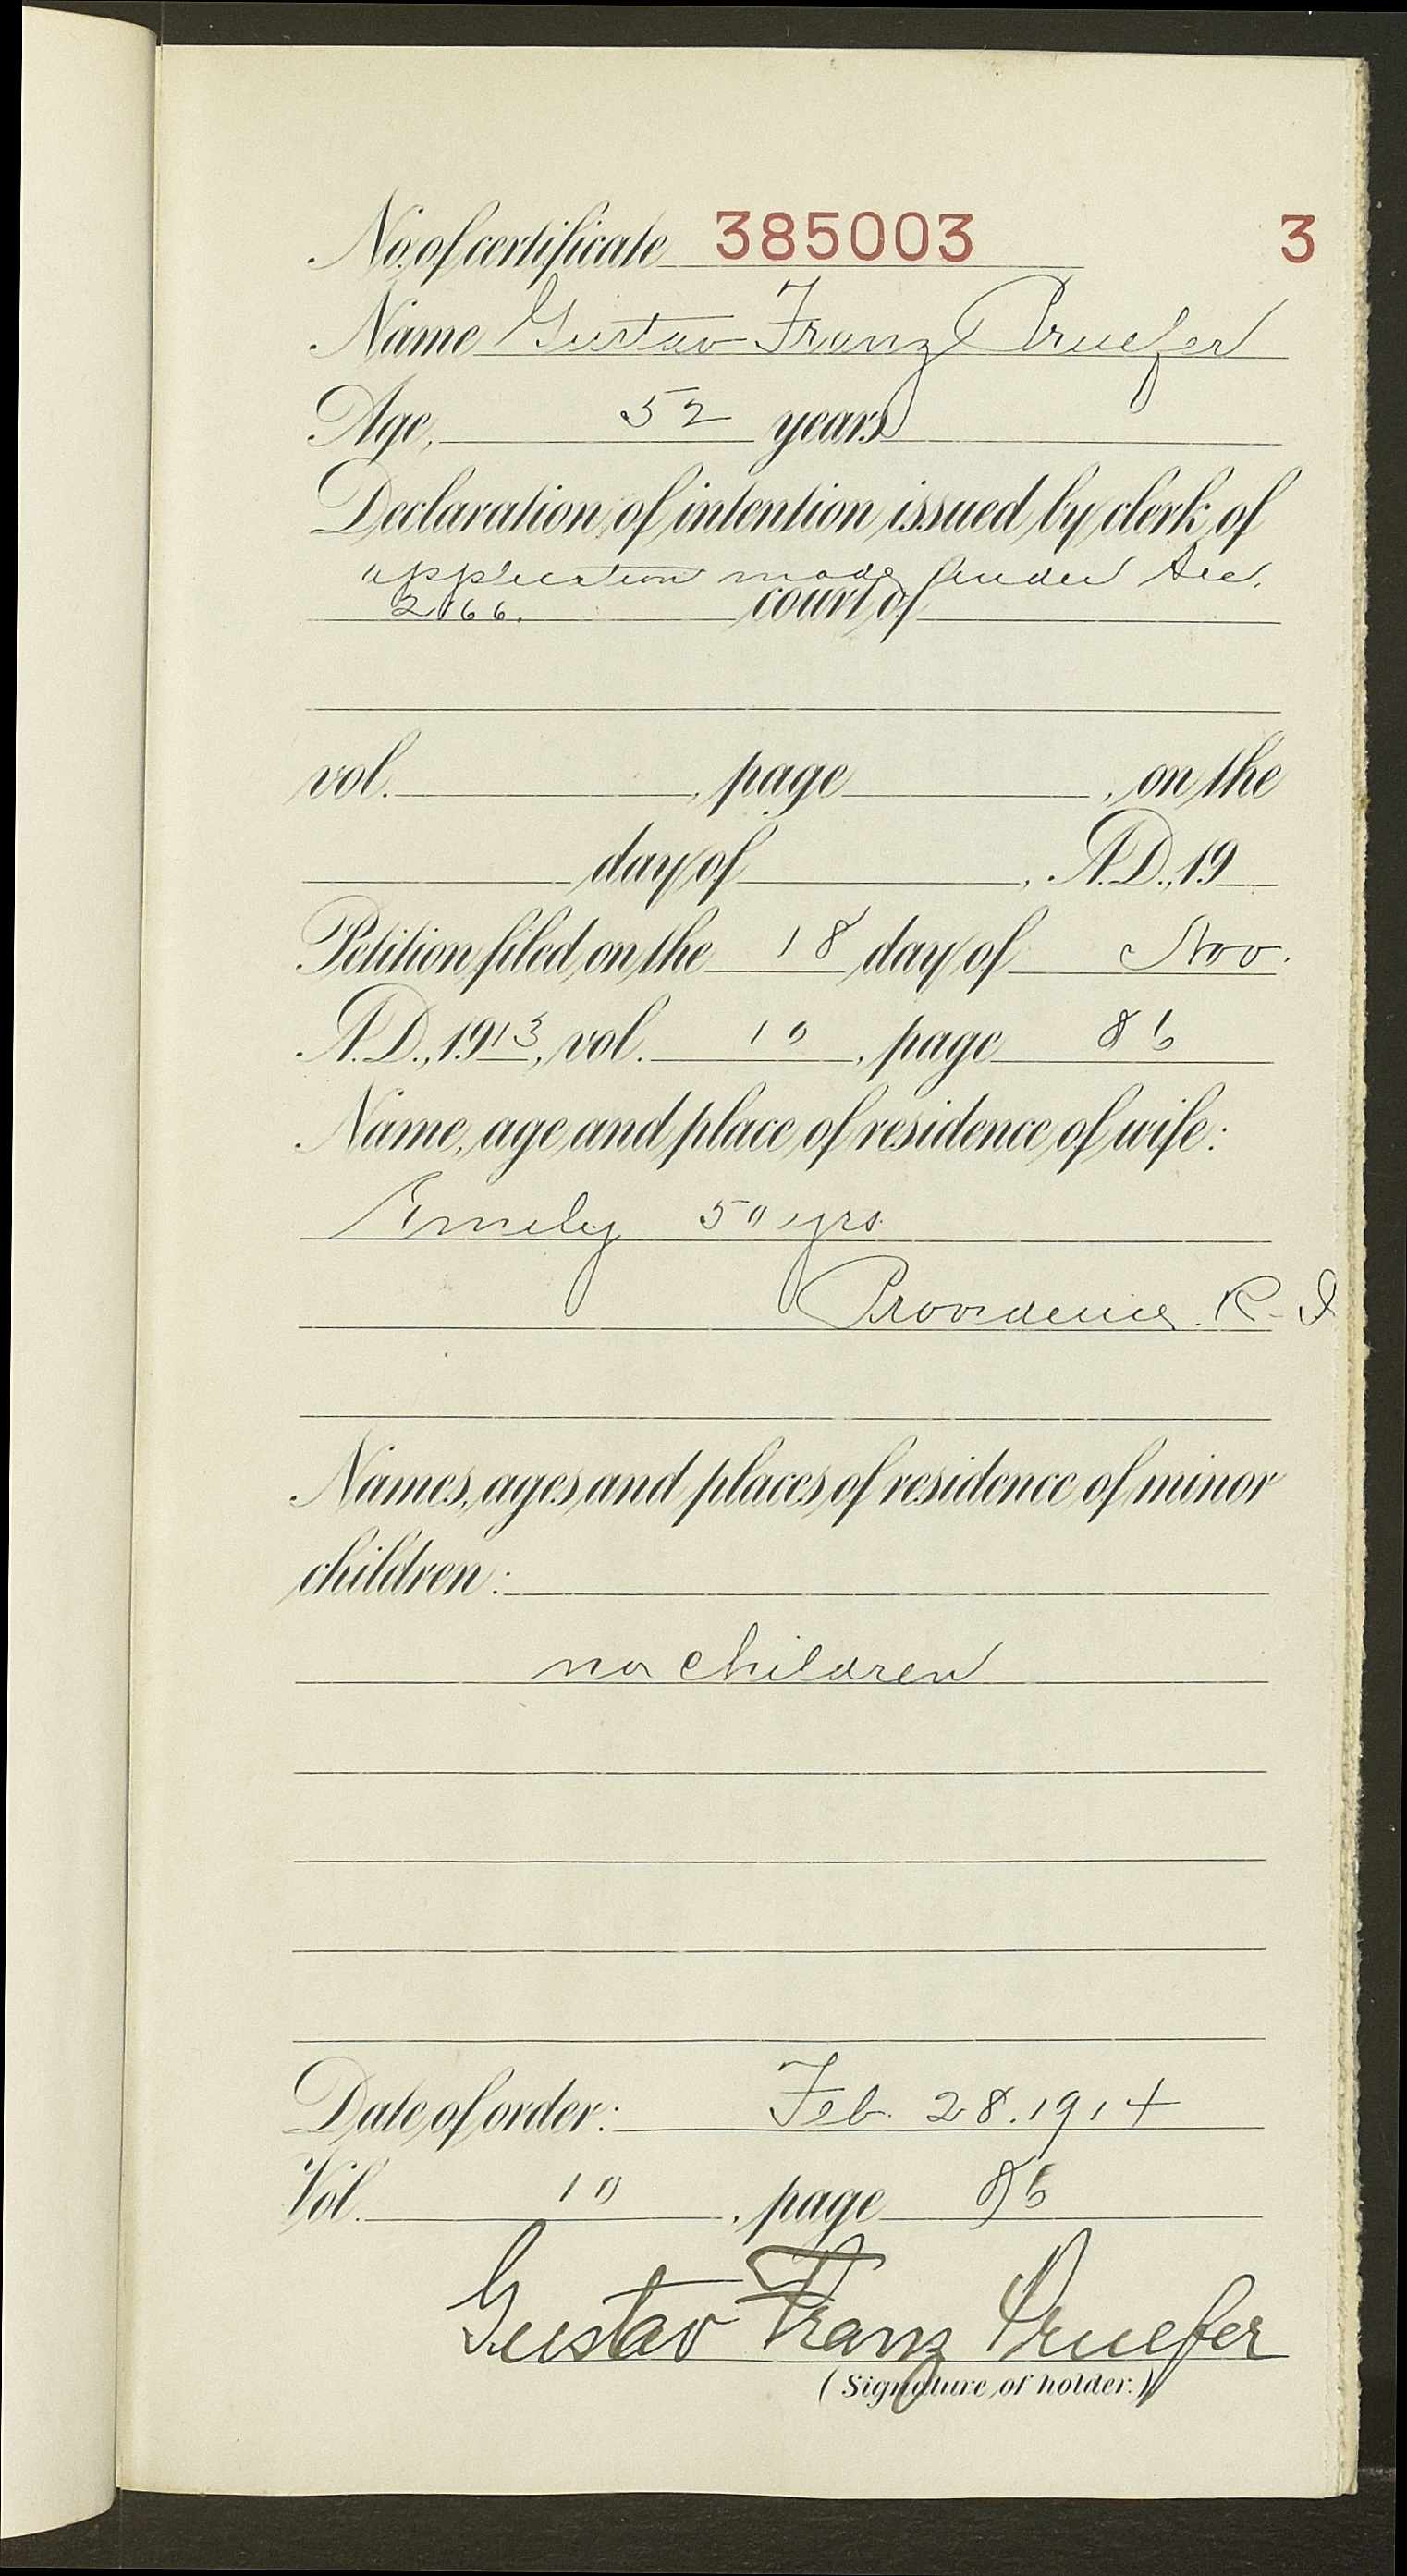 No. of certificate 385003 3
Name Gustav Franz Pruefer
Age, 52 years
Declaration of intention issued by clerk of
application made under Sec.
2166. court of
vol. , page , on the
day of , A.D., 19
Petition filed on the 18 day of Nov.
A.D., 1913, vol. 10, page 86
Name, age and place of residence of wife:
Emily 50 yrs.
Providence. R. I
Names, ages and places of residence of minor
children:
no children
Date of order: Feb. 28. 1914
Vol. 10, page 86
Gustav Franz Pruefer
(Signature of holder.)